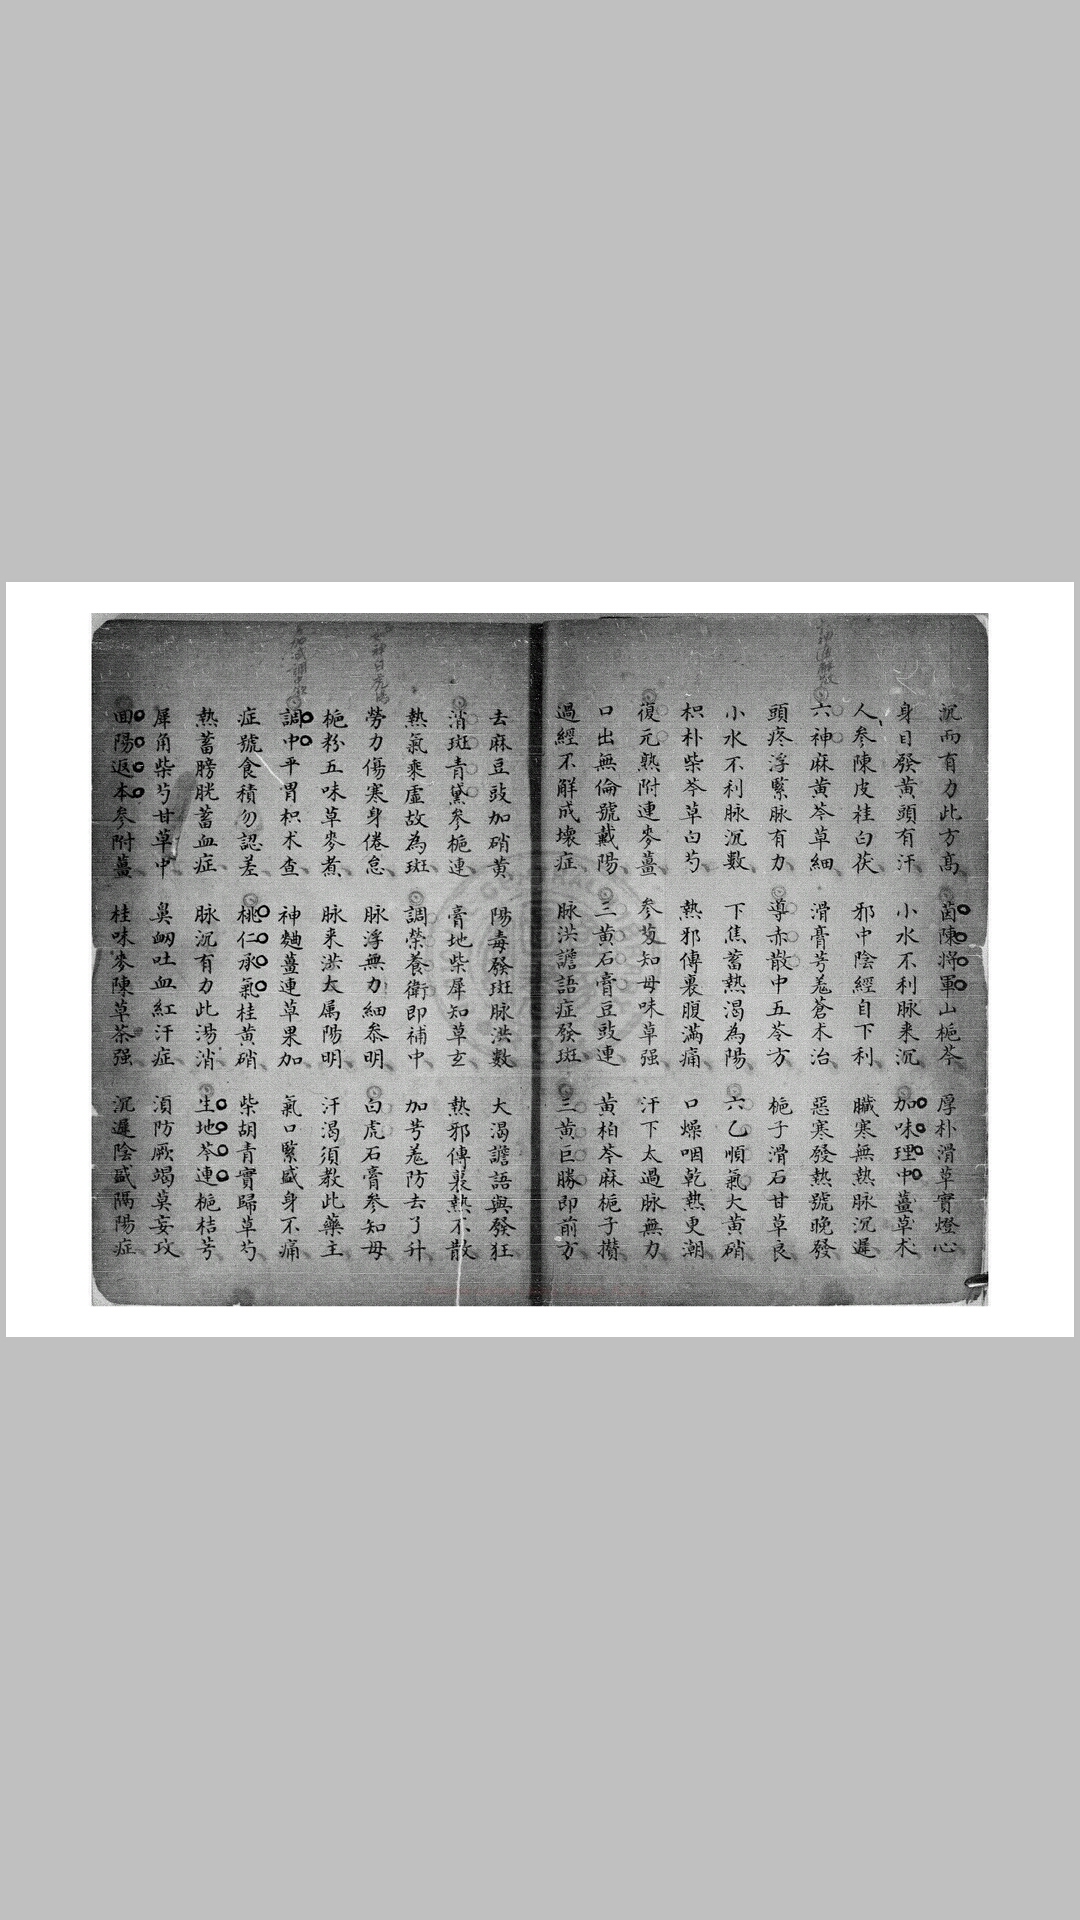 沉而有力此方高 茵陳將軍山梔芩 厚朴滑草實燈心
身目發黃頭有汗 小水不利脉来沉 加味理中薑草术
人参陳皮桂白茯 邪中陰經自下利 臟寒無熱脉沉遲
六神麻黃芩草細 滑膏芎羗蒼术治 惡寒發熱號晚發
頭疼浮緊脉有力 導赤散中五苓方 梔子滑石甘草良
小水不利脉沉數 下焦蓄熱渴為陽 六乙順氣大黃硝
枳朴柴芩草白芍 熱邪傳裏腹滿痛 口燥咽乾熱更潮
復元熟附連麥薑 参茇知母味草强 汗下太過脉無力
口出無倫號戴陽 三黃石膏豆豉連 黃柏芩麻梔子攢
過經不解成壞症 脉洪譫語症發斑 三黃巨勝即前方
去麻豆豉加硝黃 陽毒發斑脉洪數 大渴譫語與發狂
消斑青黛参梔連 膏地柴犀知草玄 熱邪傳裏熱不散
熱氣乘虛故為斑 調榮養衛即補中 加芎羗防去了升
勞力傷寒身倦怠 脉浮無力細叅明 白虎石膏参知母
梔粉五味草麥煮 脉来洪大属陽明 汗渴須教此藥主
調中平胃枳术查 神麯薑連草果加 氣口緊盛身不痛
症號食積勿認差 桃仁承氣桂黃硝 柴胡青實歸草芍
熱蓄膀胱蓄血症 脉沉有力此湯消 生地芩連梔桔芎
犀角柴芍甘草中 鼻衂吐血紅汗症 須防厥竭莫妄攻
囬陽返本参附薑 桂味麥陳草茶强 沉遲陰盛隔陽症